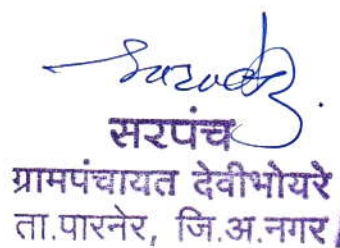 सरपंच
ग्रामपंचायत देवीभोयरे
ता.पारनेर, जि.अ.नगर